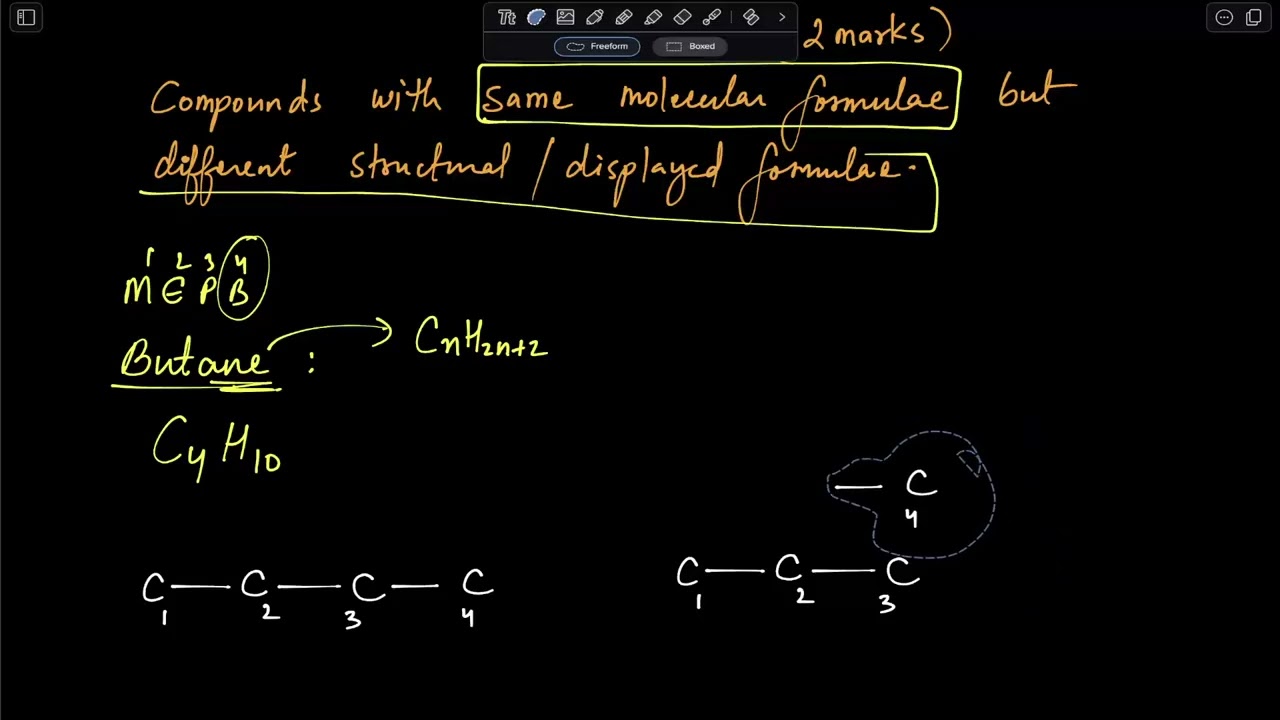 2 marks)
Freeform Boxed
Compounds with same molecular formulae but
different structural / displayed formulae.
1 2 3 4
M E P B
Butane : CnH2n+2
C4H10
C
4
C — C — C — C
1 2 3 4
C — C — C
1 2 3